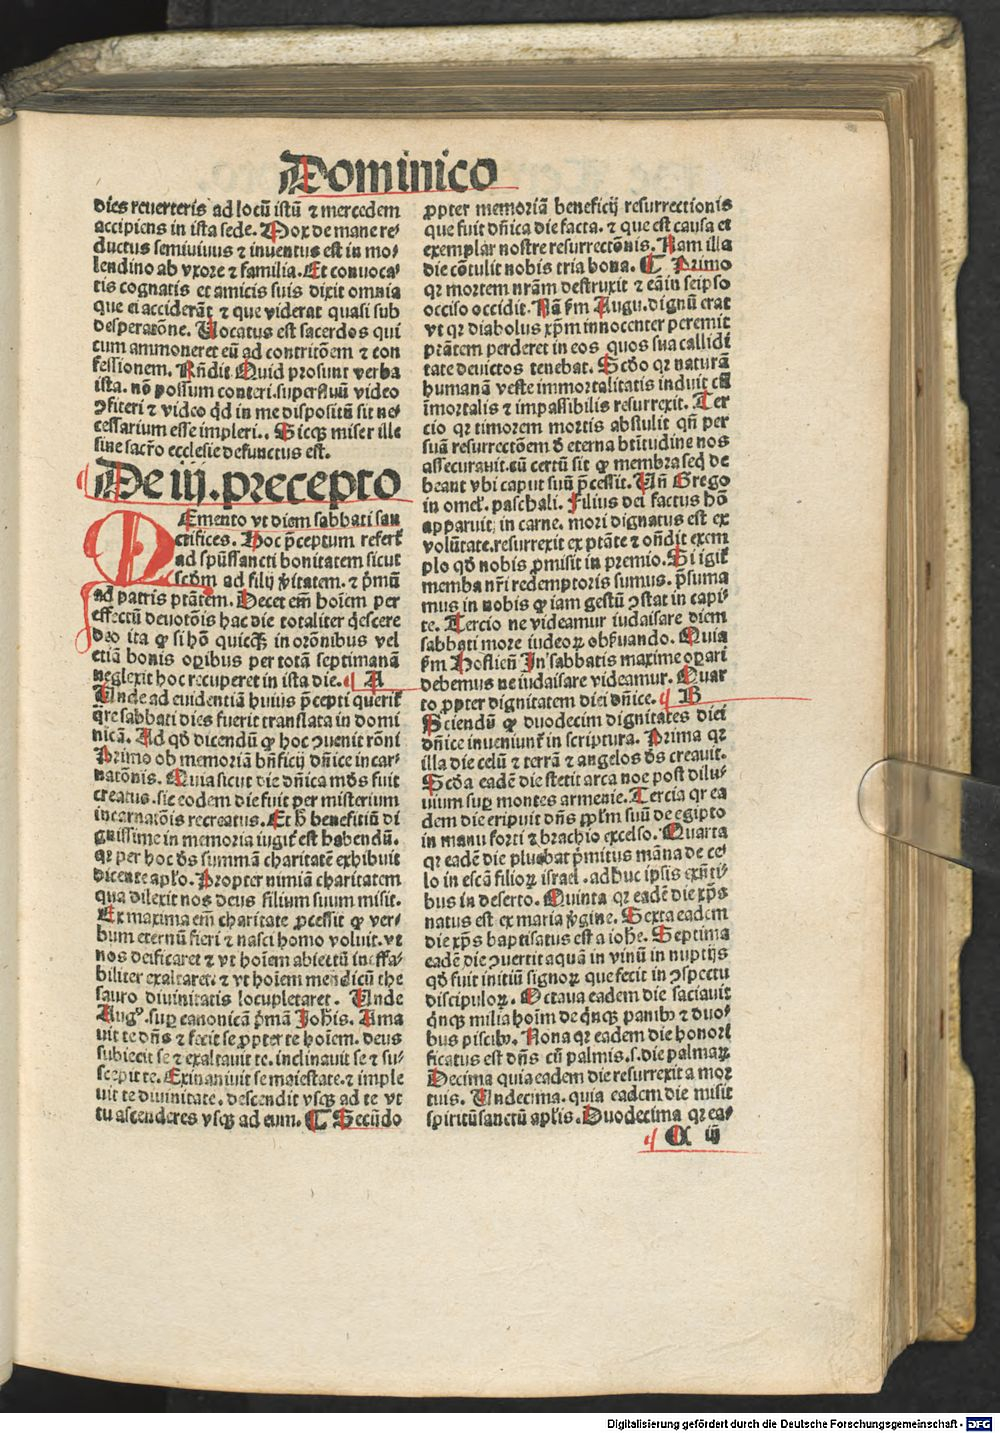 Dominico
dies reuerteris ad locū istū ⁊ mercedem
accipiens in ista sede. Mox de mane re-
ductus semiuiuus ⁊ inuentus est in mo-
lendino ab vxore ⁊ familia. Et conuoca-
tis cognatis et amicis suis dixit omnia
que ei acciderāt ⁊ que viderat quasi sub
desperatōne. Uocatus est sacerdos qui
cum ammoneret eū ad contritōem ⁊ con
fessionem. Rn̄dit Quid prosunt verba
ista. nō possum conteri. superfluū video
ꝯfiteri ⁊ video qd̄ in me dispositū sit ne-
cessarium esse impleri.. Sicqꝫ miser ille
sine sacr̄o ecclesie defunctus est.
De iij. precepto
MEmento vt diem sabbati san
ctifices. Hoc p̄ceptum refert᷑
ad spūssancti bonitatem sicut
scd̄m ad filij v̄itatem. ⁊ p̄mū
ad patris ptātem. Decet em̄ hoīem per
effectū deuotōis hac die totaliter q̄escere
deo ita ꝙ si hō quicq̄ꝫ in orōnibus vel
etiā bonis oꝑibus per totā septimanā
neglexit hoc recuperet in ista die. ¶ A
Unde ad euidentiā huius p̄cepti querit᷑
q̄re sabbati dies fuerit translata in domi
nicā. Ad qd̄ dicendū ꝙ hoc ꝯuenit rōni
Primo ob memoriā bn̄ficij dn̄ice incar-
natōnis. Quia sicut die dn̄ica mūdus fuit
creatus. sic eodem die fuit per misterium
incarnatōis recreatus. Et h̄ benefitiū di
gnissime in memoria iugit᷑ est habendū.
qꝛ per hoc de᷒s summā charitatē exhibuit
dicente apl̄o. Propter nimiā charitatem
qua dilexit nos deus filium suum misit.
Ex maxima em̄ charitate ꝓcessit ꝙ ver-
bum eternū fieri ⁊ nasci homo voluit. vt
nos deificaret ⁊ vt hoīem abiectū ineffa-
biliter exaltaret. ⁊ vt hoīem mendicū the
sauro diuinitatis locupletaret. Unde
Augꝰ. suꝑ canonicā p̄mā Joh̄is. Ama
uit te dn̄s ⁊ fecit se ꝓpter te hoīem. deus
subiecit se ⁊ exaltauit te. inclinauit se ⁊ su-
scepit te. Exinaniuit se maiestate. ⁊ imple
uit te diuinitate. descendit vsqꝫ ad te vt
tu ascenderes vsqꝫ ad eum. ¶ Secūdo
ꝓpter memoriā beneficij resurrectionis
que fuit dn̄ica die facta. ⁊ que est causa et
exemplar nostre resurrectōnis. Nam illa
die cōtulit nobis tria bona. ¶ Primo
qꝛ mortem nr̄am destruxit ⁊ eā in seipso
occiso occidit. Nā s̄m Augu. dignū erat
vt qꝛ diabolus xp̄m innocenter peremit
ptātem perderet in eos quos sua callidi
tate deuictos tenebat. Scd̄o qꝛ naturā
humanā veste immortalitatis induit cū
īmortalis ⁊ impassibilis resurrexit. Ter
cio qꝛ timorem mortis abstulit qn̄ per
suā resurrectōem de eterna btītudine nos
assecurauit. cū certū sit ꝙ membra seq̄ de
beant vbi caput suū p̄cessit. Un̄ Grego
in omel᷑. paschali. Filius dei factus hō
apparuit in carne. mori dignatus est ex
volūtate. resurrexit ex ptāte ⁊ ostēdit exem
plo qd̄ nobis ꝓmisit in premio. Si igit᷑
membra nr̄i redemptoris sumus. p̄suma
mus in nobis ꝙ iam gestū ꝯstat in capi-
te. Tercio ne videamur iudaisare diem
sabbati more iudeoꝝ obseruando. Quia
s̄m Hostien̄ In sabbatis maxime oꝑari
debemus ne iudaisare videamur. Quar
to ꝓpter dignitatem diei dn̄ice. ¶ B
Sciendū ꝙ duodecim dignitates diei
dn̄ice inueniunt᷑ in scriptura. Prima qꝛ
illa die celū ⁊ terrā ⁊ angelos de᷒s creauit.
Scd̄a eadē die stetit arca noe post dilu-
uium suꝑ montes armenie. Tercia qꝛ ea
dem die eripuit dn̄s ppl̄m suū de egipto
in manu forti ⁊ brachio excelso. Quarta
qꝛ eadē die pluebat p̄mitus māna de ce-
lo in escā filioꝝ israel. adhuc ipsis exn̄ti-
bus in deserto. Quinta qꝛ eadē die xp̄s
natus est ex maria v̄gine. Sexta eadem
die xp̄s baptisatus est a ioh̄e. Septima
eadē die ꝯuertit aquā in vinū in nuptijs
qd̄ fuit initiū signoꝝ que fecit in ꝯspectu
discipuloꝝ. Octaua eadem die saciauit
q̄nqꝫ milia hoīm de q̄nqꝫ panibꝰ ⁊ duo-
bus piscibꝰ. Nona qꝛ eadem die honori
ficatus est dn̄s cū palmis. s. die palmaꝝ
Decima quia eadem die resurrexit a mor
tuis. Undecima. quia eadem die misit
spiritūsanctū apl̄is. Duodecima qꝛ ea-
¶ C iij
Digitalisierung gefördert durch die Deutsche Forschungsgemeinschaft - DFG